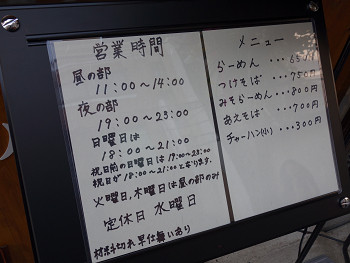 営業時間
昼の部
11:00~14:00
夜の部
19:00~23:00
日曜日は
18:00~21:00
祝日前の日曜日は19:00~23:00
祝日が18:00~21:00となります。
火曜日,木曜日は昼の部のみ
定休日 水曜日
材料切れ早仕舞いあり
メニュー
らーめん ・・・650円
つけそば ・・・750円
みそらーめん ・・・800円
あえそば ・・・700円
チャーハン(小) ・・・300円